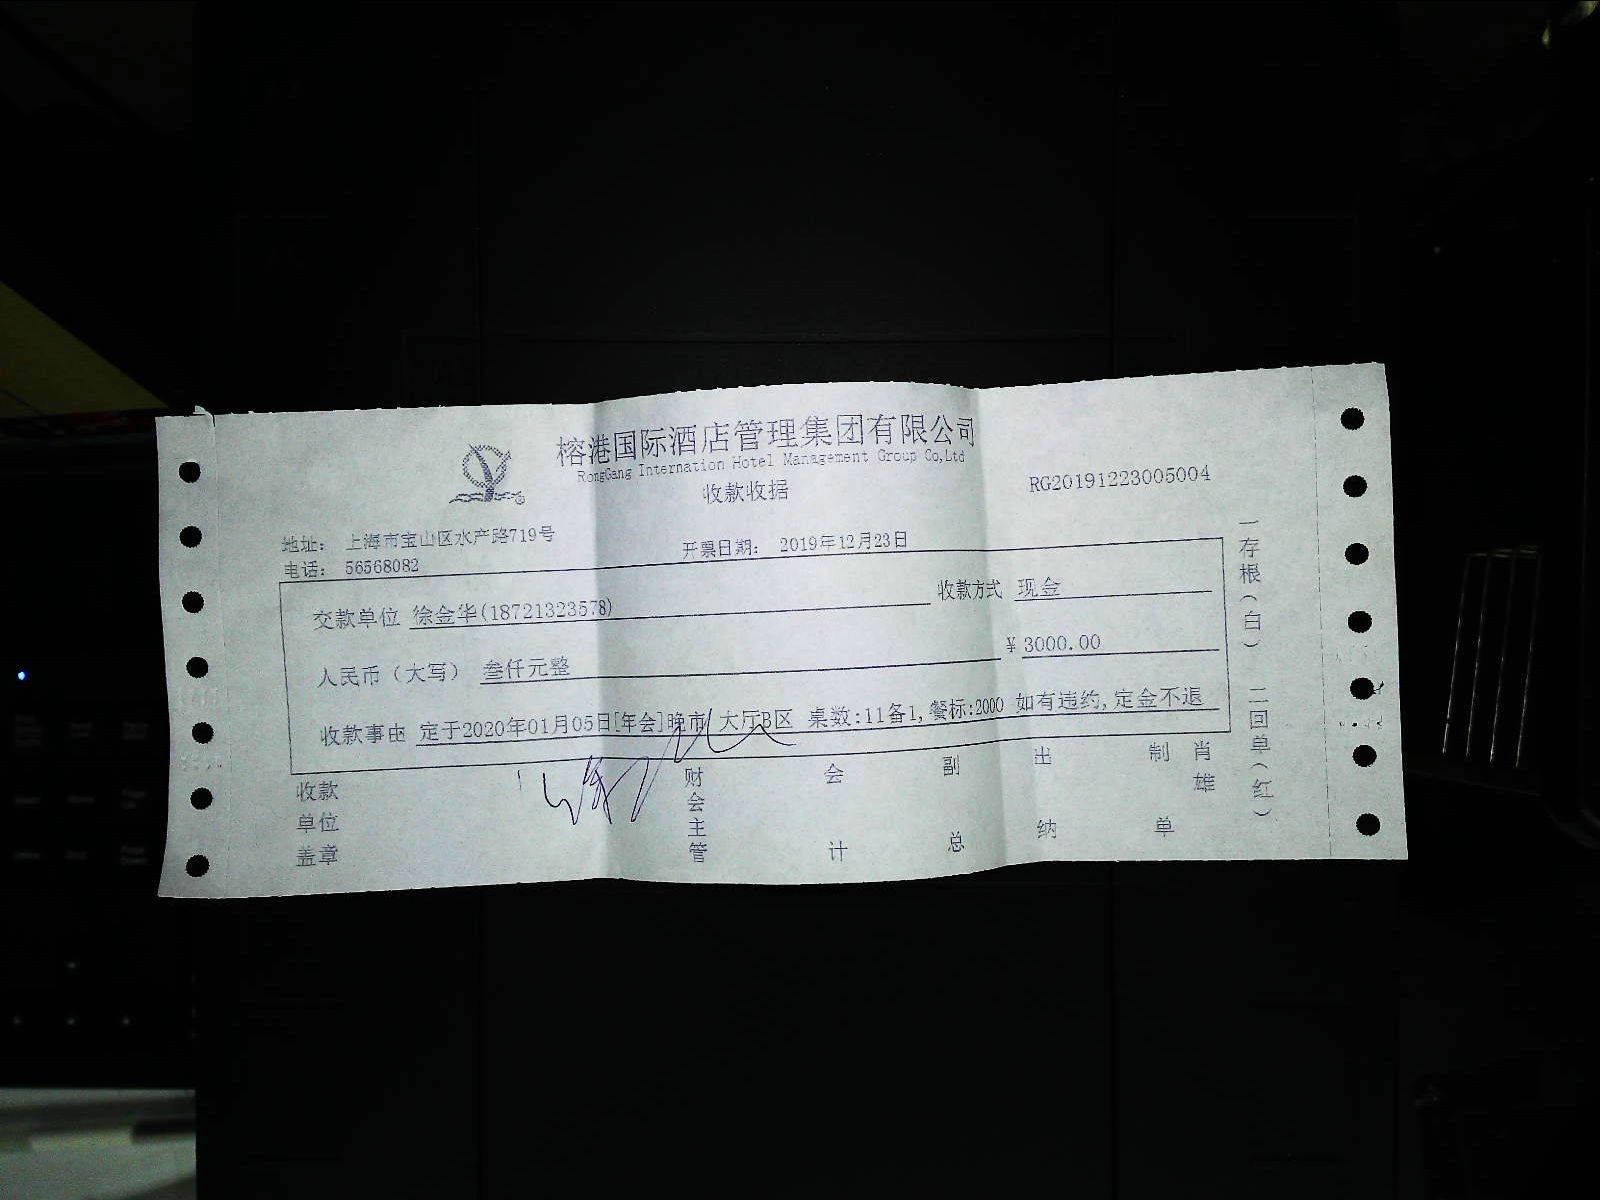 榕港国际酒店管理集团有限公司
RongGang Internation Hotel Management Group Co,Ltd
收款收据
RG20191223005004
地址： 上海市宝山区水产路719号
电话： 56568082
开票日期： 2019年12月23日
交款单位 徐金华(18721323578)
收款方式 现金
人民币（大写） 叁仟元整
￥3000.00
收款事由 定于2020年01月05日[年会]晚市 大厅B区 桌数:11备1,餐标:2000 如有违约,定金不退
收款单位盖章
财会主管
会计
副总
出纳
制单
肖雄
一存根（白） 二回单（红）